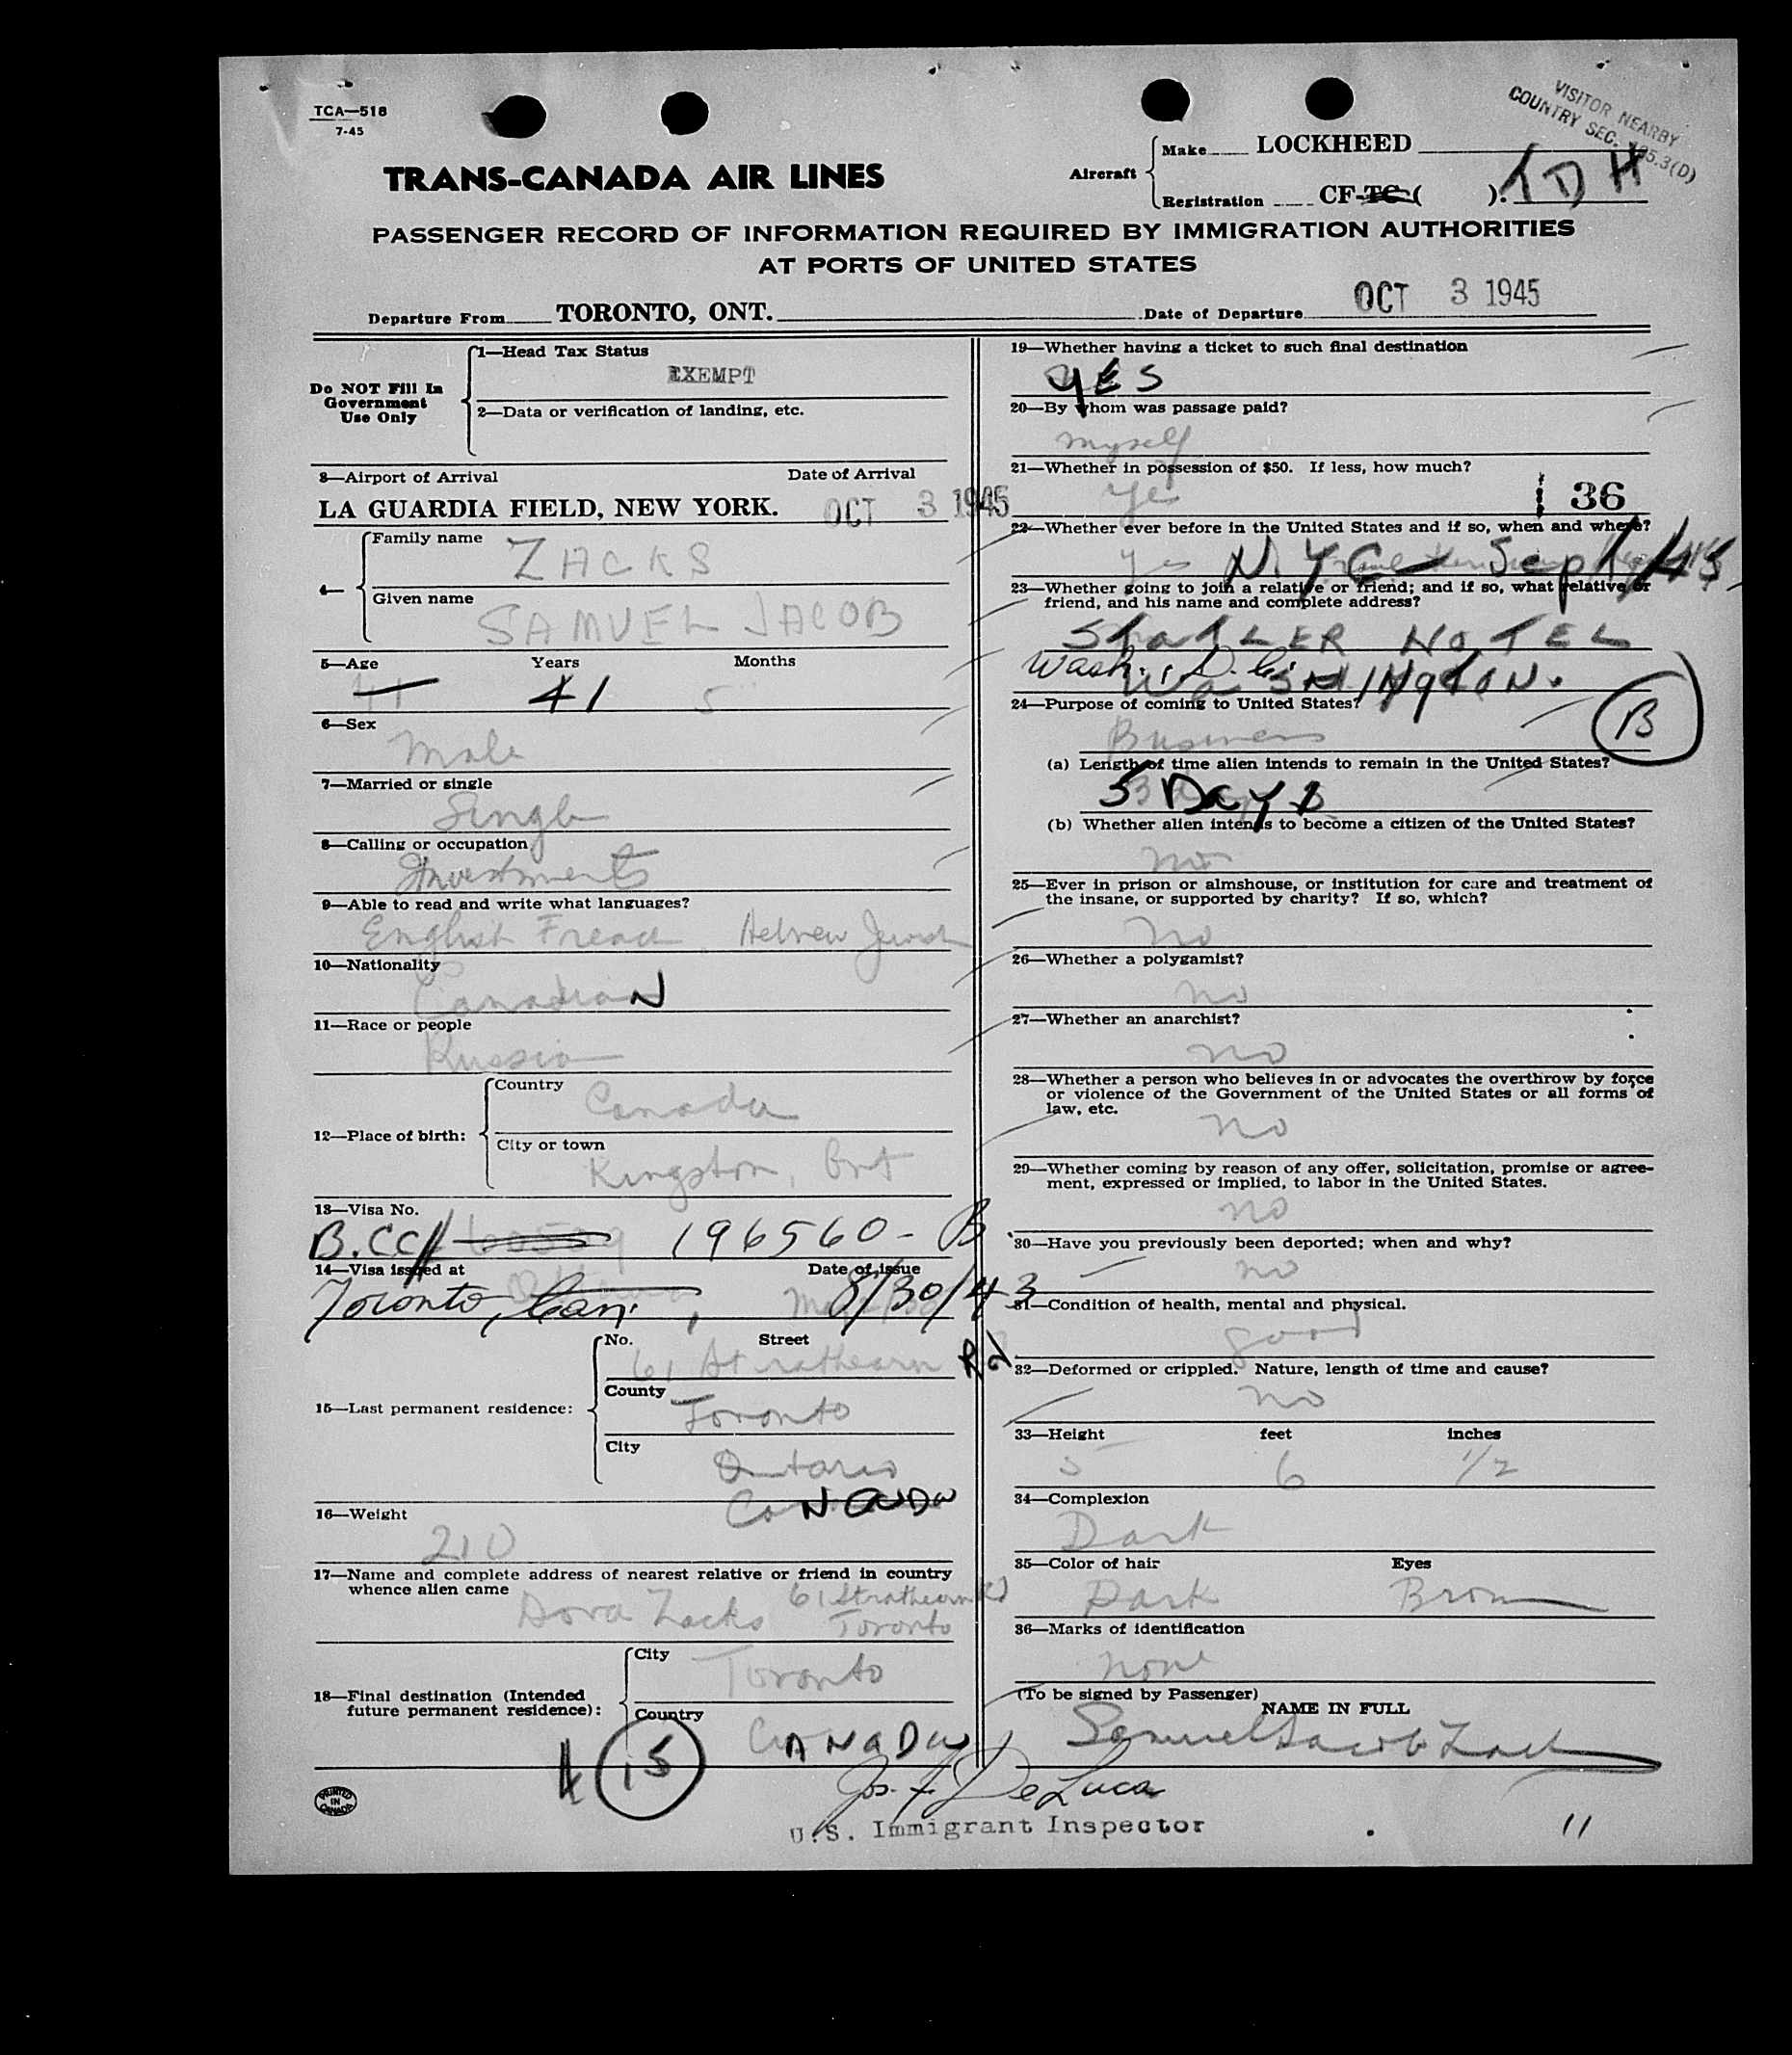 TCA—518
7-45
VISITOR NEARBY
COUNTRY SEC.
TRANS-CANADA AIR LINES
Aircraft
Make LOCKHEED
Registration CF-TC ( ). TDH
PASSENGER RECORD OF INFORMATION REQUIRED BY IMMIGRATION AUTHORITIES
AT PORTS OF UNITED STATES
Departure From TORONTO, ONT. Date of Departure OCT 3 1945
Do NOT Fill In
Government
Use Only
1—Head Tax Status
EXEMPT
2—Data or verification of landing, etc.
3—Airport of Arrival Date of Arrival
LA GUARDIA FIELD, NEW YORK. OCT 3 1945
4—
Family name
ZACKS
Given name
SAMUEL JACOB
5—Age Years Months
41 41 5
6—Sex
Male
7—Married or single
Single
8—Calling or occupation
Investments
9—Able to read and write what languages?
English French, Hebrew Jewish
10—Nationality
Canadian
11—Race or people
Russian
12—Place of birth:
Country
Canada
City or town
Kingston, Ont
13—Visa No.
B.CC# 196560-B
14—Visa issued at Date of issue
Toronto, Can. 8/30/43
15—Last permanent residence:
No. Street
61 Strathearn Rd
County
Toronto
City
Ontario
Canada
16—Weight
210
17—Name and complete address of nearest relative or friend in country
whence alien came
Dora Zacks 61 Strathearn Rd
Toronto
18—Final destination (Intended
future permanent residence):
City
Toronto
Country
CANADA
15
PRINTED
IN
CANADA
19—Whether having a ticket to such final destination
YES
20—By whom was passage paid?
myself
21—Whether in possession of $50. If less, how much?
yes
36
22—Whether ever before in the United States and if so, when and where?
Yes N.Y.C - Sept/45
23—Whether going to join a relative or friend; and if so, what relative or
friend, and his name and complete address?
StatLER HOTEL
Wash., D.C.
WaSHINgtON.
24—Purpose of coming to United States?
Business
B
(a) Length of time alien intends to remain in the United States?
5 Days
(b) Whether alien intends to become a citizen of the United States?
no
25—Ever in prison or almshouse, or institution for care and treatment of
the insane, or supported by charity? If so, which?
no
26—Whether a polygamist?
no
27—Whether an anarchist?
no
28—Whether a person who believes in or advocates the overthrow by force
or violence of the Government of the United States or all forms of
law, etc.
no
29—Whether coming by reason of any offer, solicitation, promise or agree-
ment, expressed or implied, to labor in the United States.
no
30—Have you previously been deported; when and why?
no
31—Condition of health, mental and physical.
good
32—Deformed or crippled. Nature, length of time and cause?
no
33—Height feet inches
5 6 1/2
34—Complexion
Dark
35—Color of hair Eyes
Dark Brown
36—Marks of identification
none
(To be signed by Passenger)
NAME IN FULL
Samuel Jacob Zacks
Jos. F. DeLuca
U.S. Immigrant Inspector
11